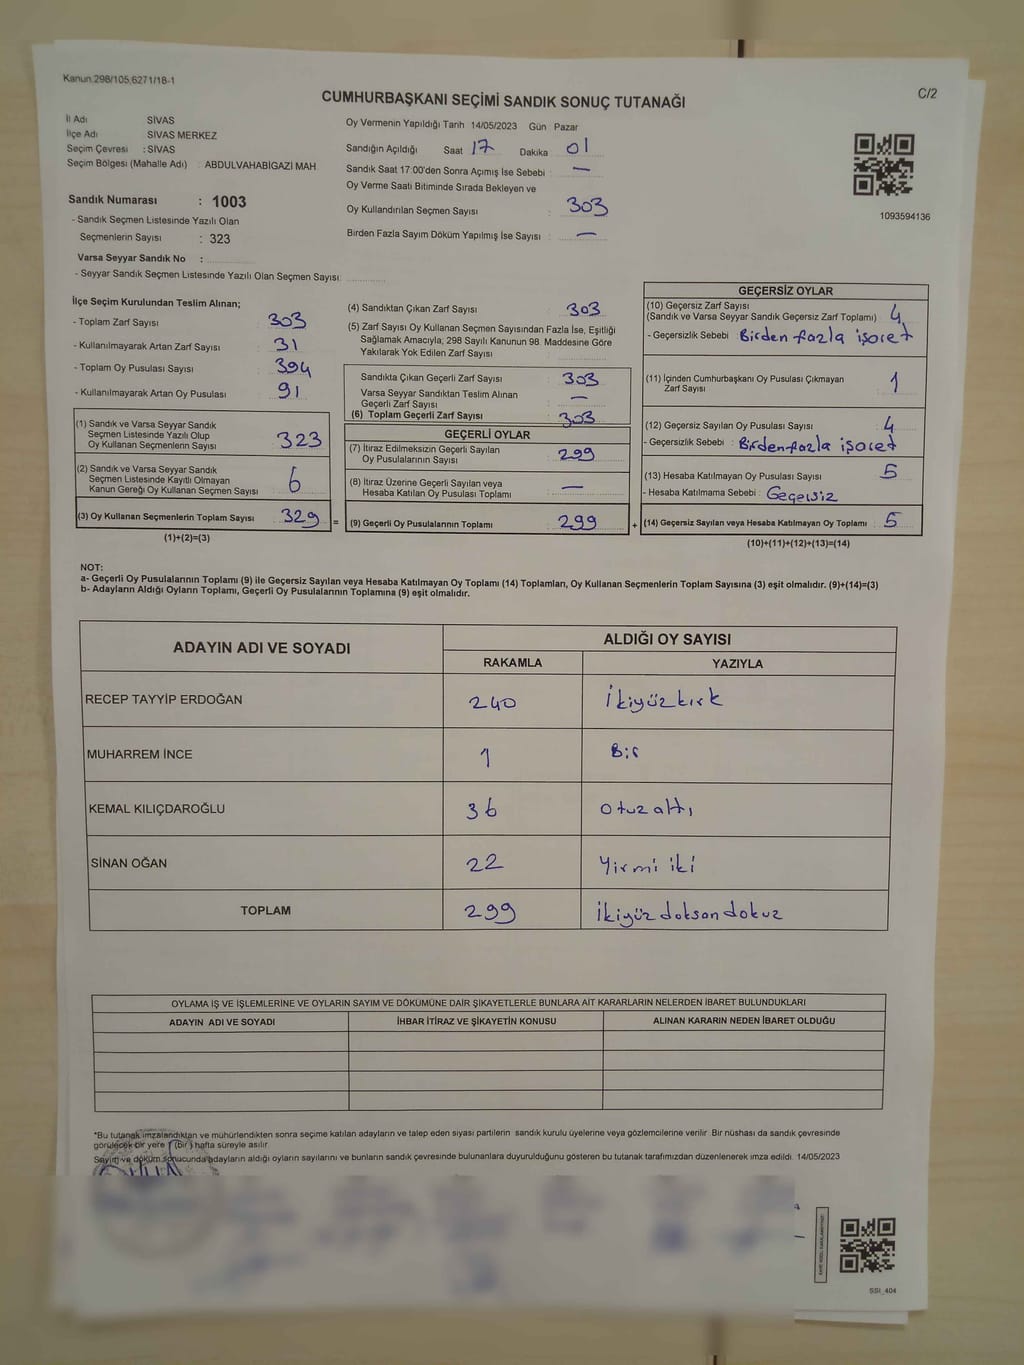 Kanun.298/105,6271/18-1
C/2
CUMHURBAŞKANI SEÇİMİ SANDIK SONUÇ TUTANAĞI
İl Adı SİVAS
İlçe Adı SİVAS MERKEZ
Seçim Çevresi : SİVAS
Seçim Bölgesi (Mahalle Adı) : ABDULVAHABİGAZİ MAH.
Sandık Numarası : 1003
- Sandık Seçmen Listesinde Yazılı Olan
Seçmenlerin Sayısı : 323
Varsa Seyyar Sandık No :
- Seyyar Sandık Seçmen Listesinde Yazılı Olan Seçmen Sayısı:
Oy Vermenin Yapıldığı Tarih 14/05/2023 Gün Pazar
Sandığın Açıldığı Saat 17 Dakika 01
Sandık Saat 17:00'den Sonra Açımış İse Sebebi : —
Oy Verme Saati Bitiminde Sırada Bekleyen ve
Oy Kullandırılan Seçmen Sayısı : 303
Birden Fazla Sayım Döküm Yapılmış İse Sayısı : —
1093594136
İlçe Seçim Kurulundan Teslim Alınan;
- Toplam Zarf Sayısı : 303
- Kullanılmayarak Artan Zarf Sayısı : 31
- Toplam Oy Pusulası Sayısı : 394
- Kullanılmayarak Artan Oy Pusulası : 91
(1) Sandık ve Varsa Seyyar Sandık
Seçmen Listesinde Yazılı Olup
Oy Kullanan Seçmenlerin Sayısı : 323
(2) Sandık ve Varsa Seyyar Sandık
Seçmen Listesinde Kayıtlı Olmayan
Kanun Gereği Oy Kullanan Seçmen Sayısı : 6
(3) Oy Kullanan Seçmenlerin Toplam Sayısı : 329
(1)+(2)=(3)
=
(4) Sandıktan Çıkan Zarf Sayısı : 303
(5) Zarf Sayısı Oy Kullanan Seçmen Sayısından Fazla İse, Eşitliği
Sağlamak Amacıyla; 298 Sayılı Kanunun 98. Maddesine Göre
Yakılarak Yok Edilen Zarf Sayısı :
Sandıkta Çıkan Geçerli Zarf Sayısı : 303
Varsa Seyyar Sandıktan Teslim Alınan
Geçerli Zarf Sayısı : —
(6) Toplam Geçerli Zarf Sayısı : 303
GEÇERLİ OYLAR
(7) İtiraz Edilmeksizin Geçerli Sayılan
Oy Pusulalarının Sayısı : 299
(8) İtiraz Üzerine Geçerli Sayılan veya
Hesaba Katılan Oy Pusulası Toplamı : —
(9) Geçerli Oy Pusulalarının Toplamı : 299
+
GEÇERSİZ OYLAR
(10) Geçersiz Zarf Sayısı
(Sandık ve Varsa Seyyar Sandık Geçersiz Zarf Toplamı) : 4
- Geçersizlik Sebebi : Birden fazla işaret
(11) İçinden Cumhurbaşkanı Oy Pusulası Çıkmayan
Zarf Sayısı : 1
(12) Geçersiz Sayılan Oy Pusulası Sayısı : 4
- Geçersizlik Sebebi : Birden fazla işaret
(13) Hesaba Katılmayan Oy Pusulası Sayısı : 5
- Hesaba Katılmama Sebebi : Geçersiz
(14) Geçersiz Sayılan veya Hesaba Katılmayan Oy Toplamı : 5
(10)+(11)+(12)+(13)=(14)
NOT:
a- Geçerli Oy Pusulalarının Toplamı (9) ile Geçersiz Sayılan veya Hesaba Katılmayan Oy Toplamı (14) Toplamları, Oy Kullanan Seçmenlerin Toplam Sayısına (3) eşit olmalıdır. (9)+(14)=(3)
b- Adayların Aldığı Oyların Toplamı, Geçerli Oy Pusulalarının Toplamına (9) eşit olmalıdır.
ADAYIN ADI VE SOYADI
ALDIĞI OY SAYISI
RAKAMLA YAZIYLA
RECEP TAYYİP ERDOĞAN 240 İkiyüzkırk
MUHARREM İNCE 1 Bir
KEMAL KILIÇDAROĞLU 36 Otuz altı
SİNAN OĞAN 22 Yirmi iki
TOPLAM 299 ikiyüz doksan dokuz
OYLAMA İŞ VE İŞLEMLERİNE VE OYLARIN SAYIM VE DÖKÜMÜNE DAİR ŞİKAYETLERLE BUNLARA AİT KARARLARIN NELERDEN İBARET BULUNDUKLARI
ADAYIN ADI VE SOYADI İHBAR İTİRAZ VE ŞİKAYETİN KONUSU ALINAN KARARIN NEDEN İBARET OLDUĞU
*Bu tutanak imzalandıktan ve mühürlendikten sonra seçime katılan adayların ve talep eden siyasi partilerin sandık kurulu üyelerine veya gözlemcilerine verilir. Bir nüshası da sandık çevresinde
görülecek bir yere 1 (bir ) hafta süreyle asılır.
Sayım ve döküm sonucunda adayların aldığı oyların sayılarını ve bunların sandık çevresinde bulunanlara duyurulduğunu gösteren bu tutanak tarafımızdan düzenlenerek imza edildi. 14/05/2023
SSI_404